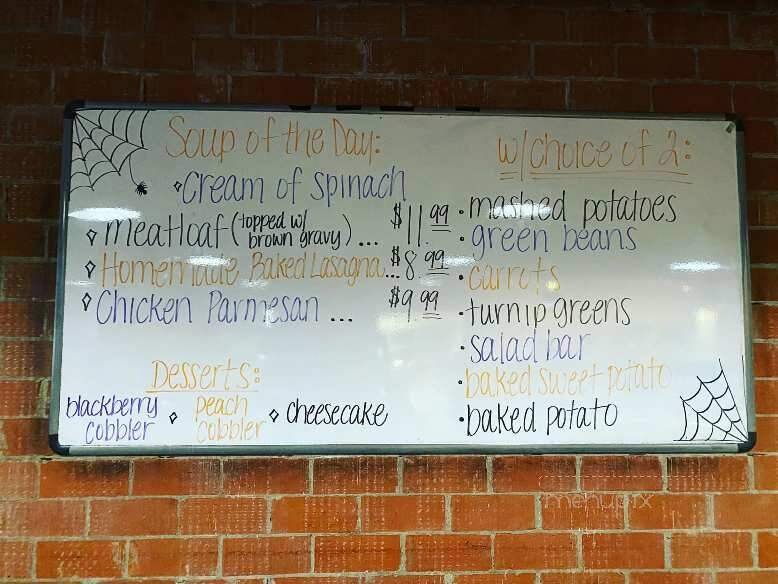 Soup of the Day:
Cream of Spinach
meatloaf (topped w/ brown gravy) ... $11.99
Homemade Baked Lasagna... $8.99
Chicken Parmesan ... $9.99
Desserts:
blackberry cobbler
peach cobbler
cheesecake
w/choice of 2:
mashed potatoes
green beans
carrots
turnip greens
salad bar
baked sweet potato
baked potato
menupix